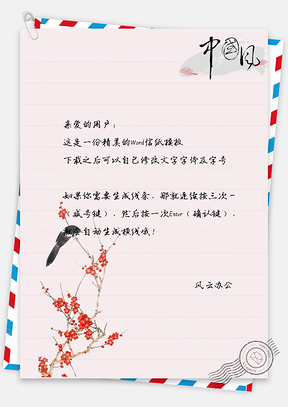 中国风
亲爱的用户：
这是一份精美的Word信纸模板
下载之后可以自己修改文字字体及字号
如果你需要生成线条，那就连续按三次－
（减号键），然后按一次Enter（确认键），
就会自动生成横线哦！
风云办公